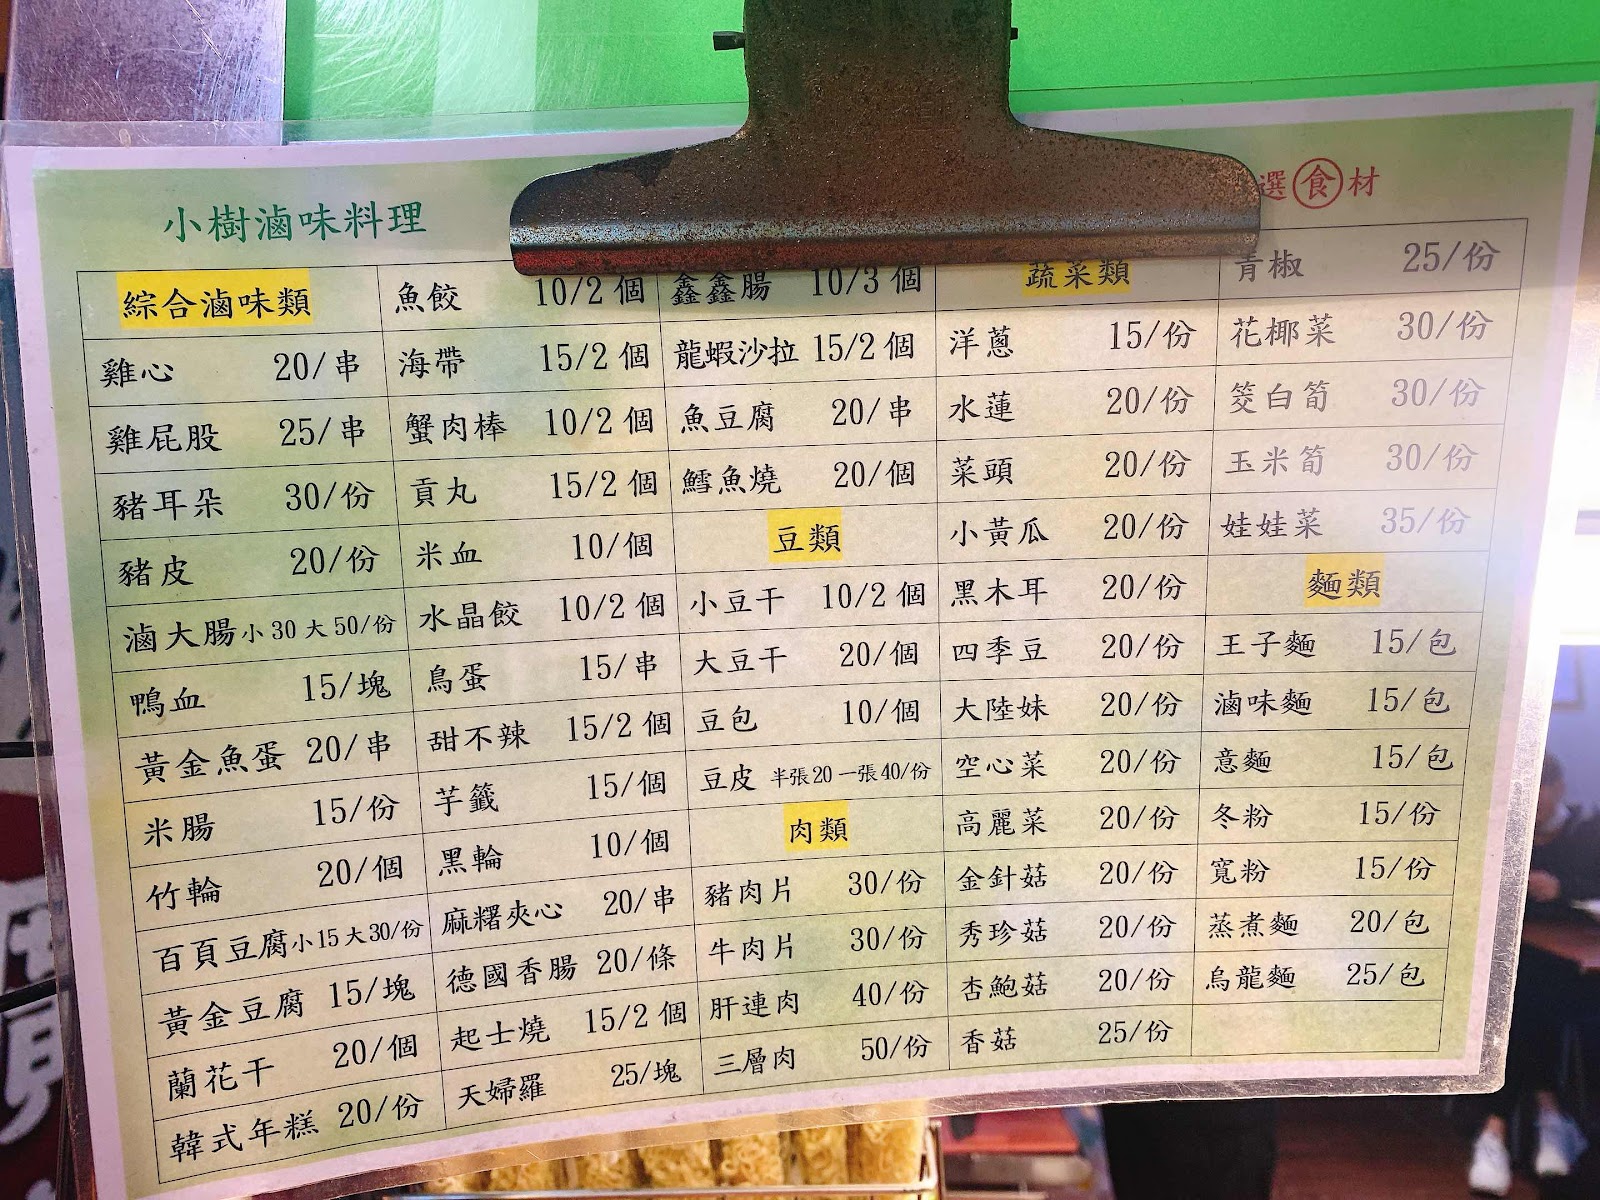 小樹滷味料理
選食材
綜合滷味類
雞心 20/串
雞屁股 25/串
豬耳朵 30/份
豬皮 20/份
滷大腸 小30 大50/份
鴨血 15/塊
黃金魚蛋 20/串
米腸 15/份
竹輪 20/個
百頁豆腐 小15 大30/份
黃金豆腐 15/塊
蘭花干 20/個
韓式年糕 20/份
魚餃 10/2個
海帶 15/2個
蟹肉棒 10/2個
貢丸 15/2個
米血 10/個
水晶餃 10/2個
鳥蛋 15/串
甜不辣 15/2個
芋籤 15/個
黑輪 10/個
麻糬夾心 20/串
德國香腸 20/條
起士燒 15/2個
天婦羅 25/塊
鑫鑫腸 10/3個
龍蝦沙拉 15/2個
魚豆腐 20/串
鱈魚燒 20/個
豆類
小豆干 10/2個
大豆干 20/個
豆包 10/個
豆皮 半張20 一張40/份
肉類
豬肉片 30/份
牛肉片 30/份
肝連肉 40/份
三層肉 50/份
蔬菜類
洋蔥 15/份
水蓮 20/份
菜頭 20/份
小黃瓜 20/份
黑木耳 20/份
四季豆 20/份
大陸妹 20/份
空心菜 20/份
高麗菜 20/份
金針菇 20/份
秀珍菇 20/份
杏鮑菇 20/份
香菇 25/份
青椒 25/份
花椰菜 30/份
筊白筍 30/份
玉米筍 30/份
娃娃菜 35/份
麵類
王子麵 15/包
滷味麵 15/包
意麵 15/包
冬粉 15/份
寬粉 15/份
蒸煮麵 20/包
烏龍麵 25/包